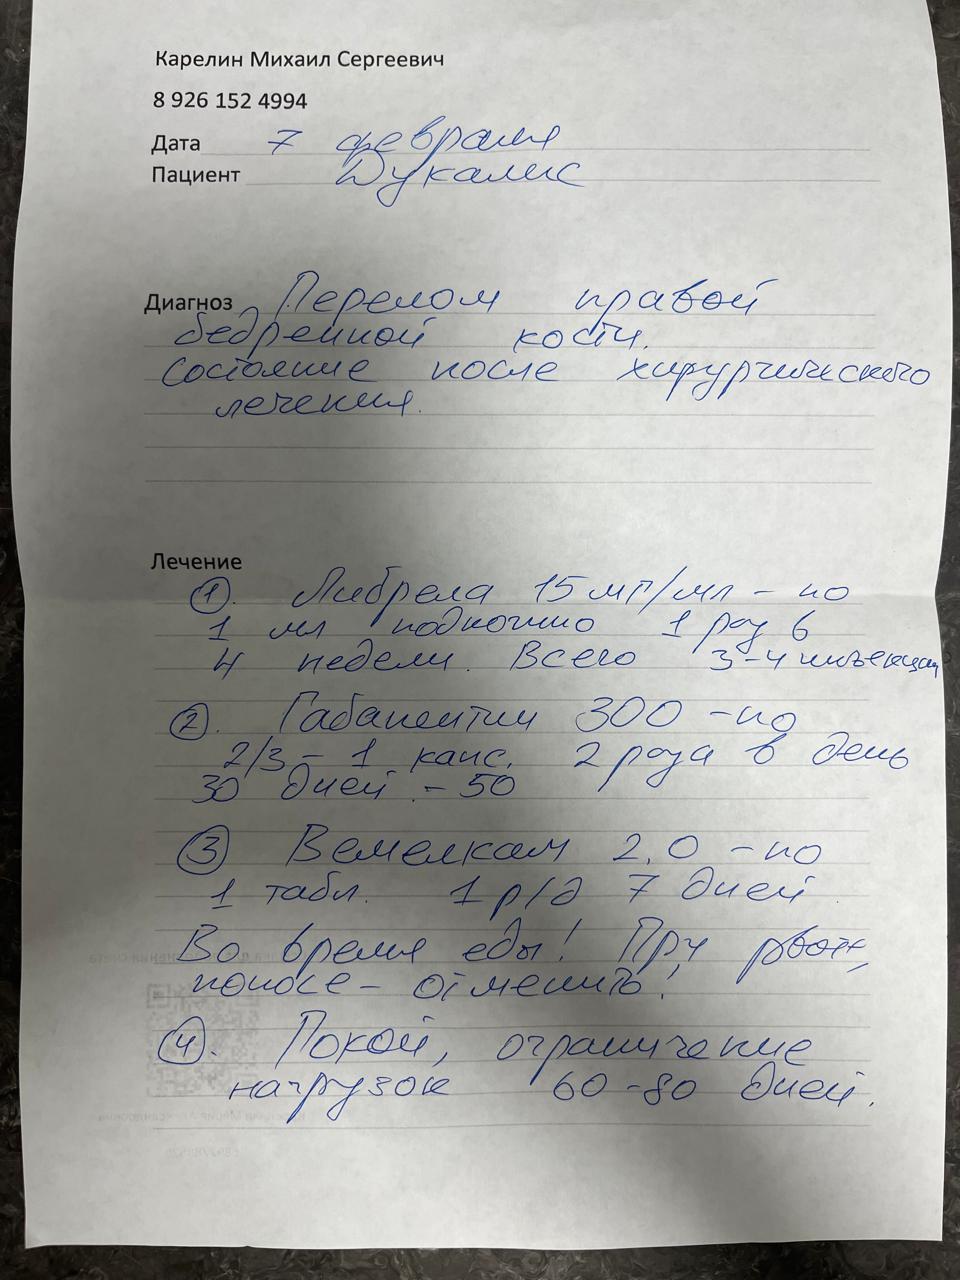 Карелин Михаил Сергеевич
8 926 152 4994
Дата 7 февраля
Пациент Дукалис
Диагноз Перелом правой
бедренной кости.
Состояние после хирургического
лечения.
Лечение
1. Либрела 15 мг/мл - по
1 мл подкожно 1 раз в
4 недели. Всего 3-4 инъекции
2. Габапентин 300 - по
2/3 - 1 капс. 2 раза в день
30 дней. - 50
3 Вемелкам 2.0 - по
1 табл. 1 р/д 7 дней
Во время еды! При рвоте,
поносе - отменить!
4. Покой, ограничение
нагрузок 60-80 дней.